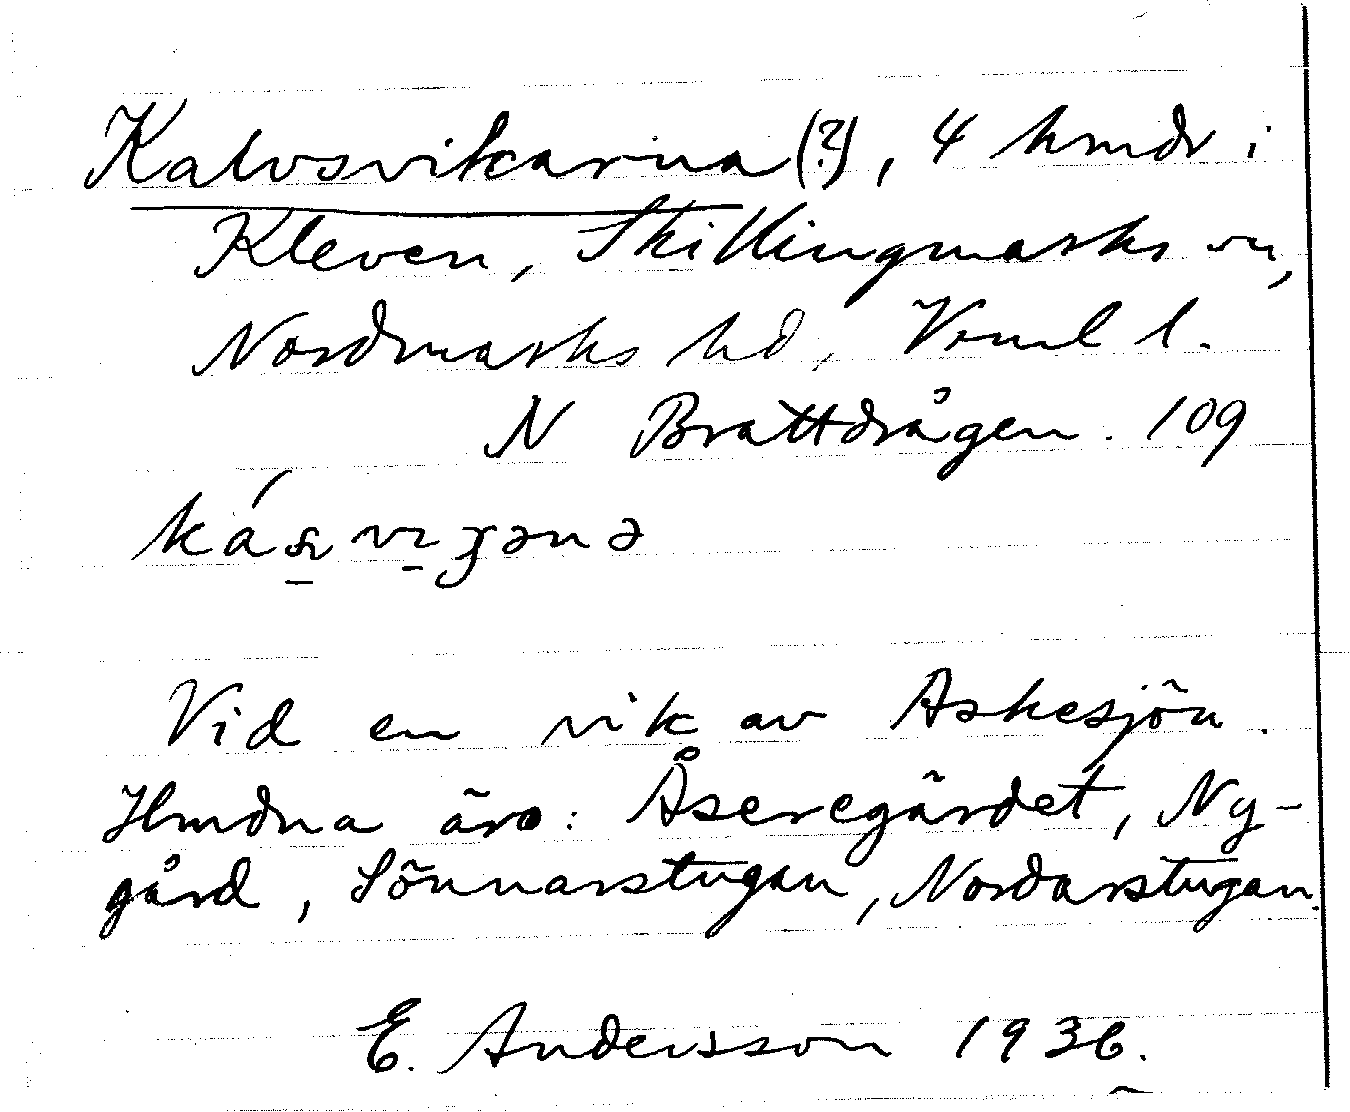 Kalvsvikarna (?), 4 hmdr i
Kleven, Skillingmarks sn,
Nordmarks hd, Verml l.
N Brattdrågen. 109
Vid en vik av Askesjön.
Hmdna äro: Åseregärdet, Ny-
gård, Sönnarstugan, Nordarstugan.
E. Andersson 1936.